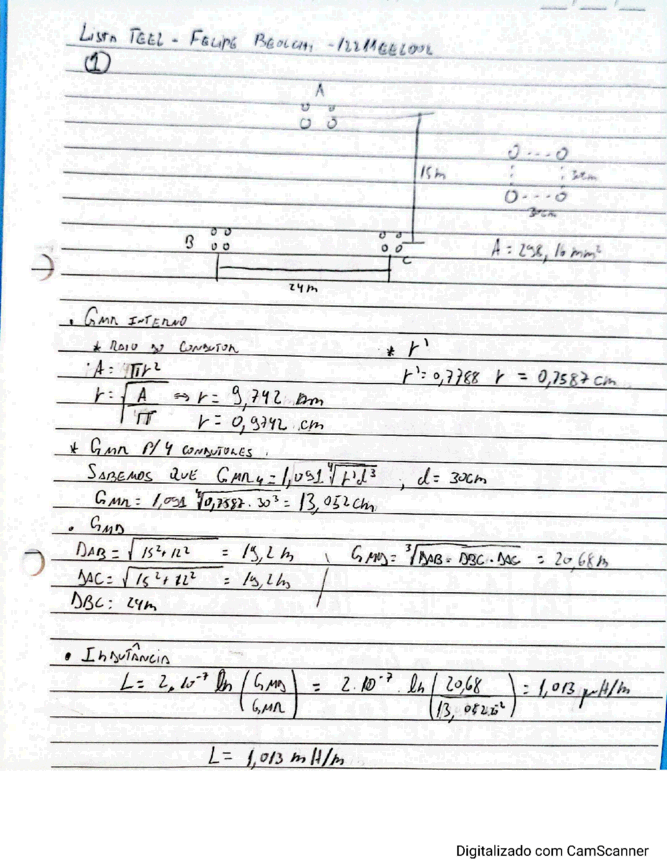 LISTA TEE2 - FELIPE BEOLCHI -
1
A
15m
30cm
30cm
B
C
24m
A = 298,16 mm²
• GMR INTERNO
* RAIO DO CONDUTOR
A = πr²
r = √(A/π) ⇔ r = 9,742 mm
r = 0,9742 cm
* r'
r' = 0,7788 r = 0,7587 cm
* GMR P/ 4 CONDUTORES.
SABEMOS QUE GMR4 = 1,091 ⁴√(r'd³) , d = 30cm
GMR = 1,091 ⁴√(0,7587 . 30³) = 13,052 cm
• GMD
DAB = √(15² + 12²) = 19,2 m
GMD = ³√(DAB . DBC . DAC) = 20,68 m
DAC = √(15² + 12²) = 19,2 m
DBC: 24m
• INDUTÂNCIA
L = 2.10⁻⁷ ln (GMD/GMR) = 2.10⁻⁷ . ln (20,68/13,052.10⁻²) = 1,013 μH/m
L = 1,013 mH/m
Digitalizado com CamScanner